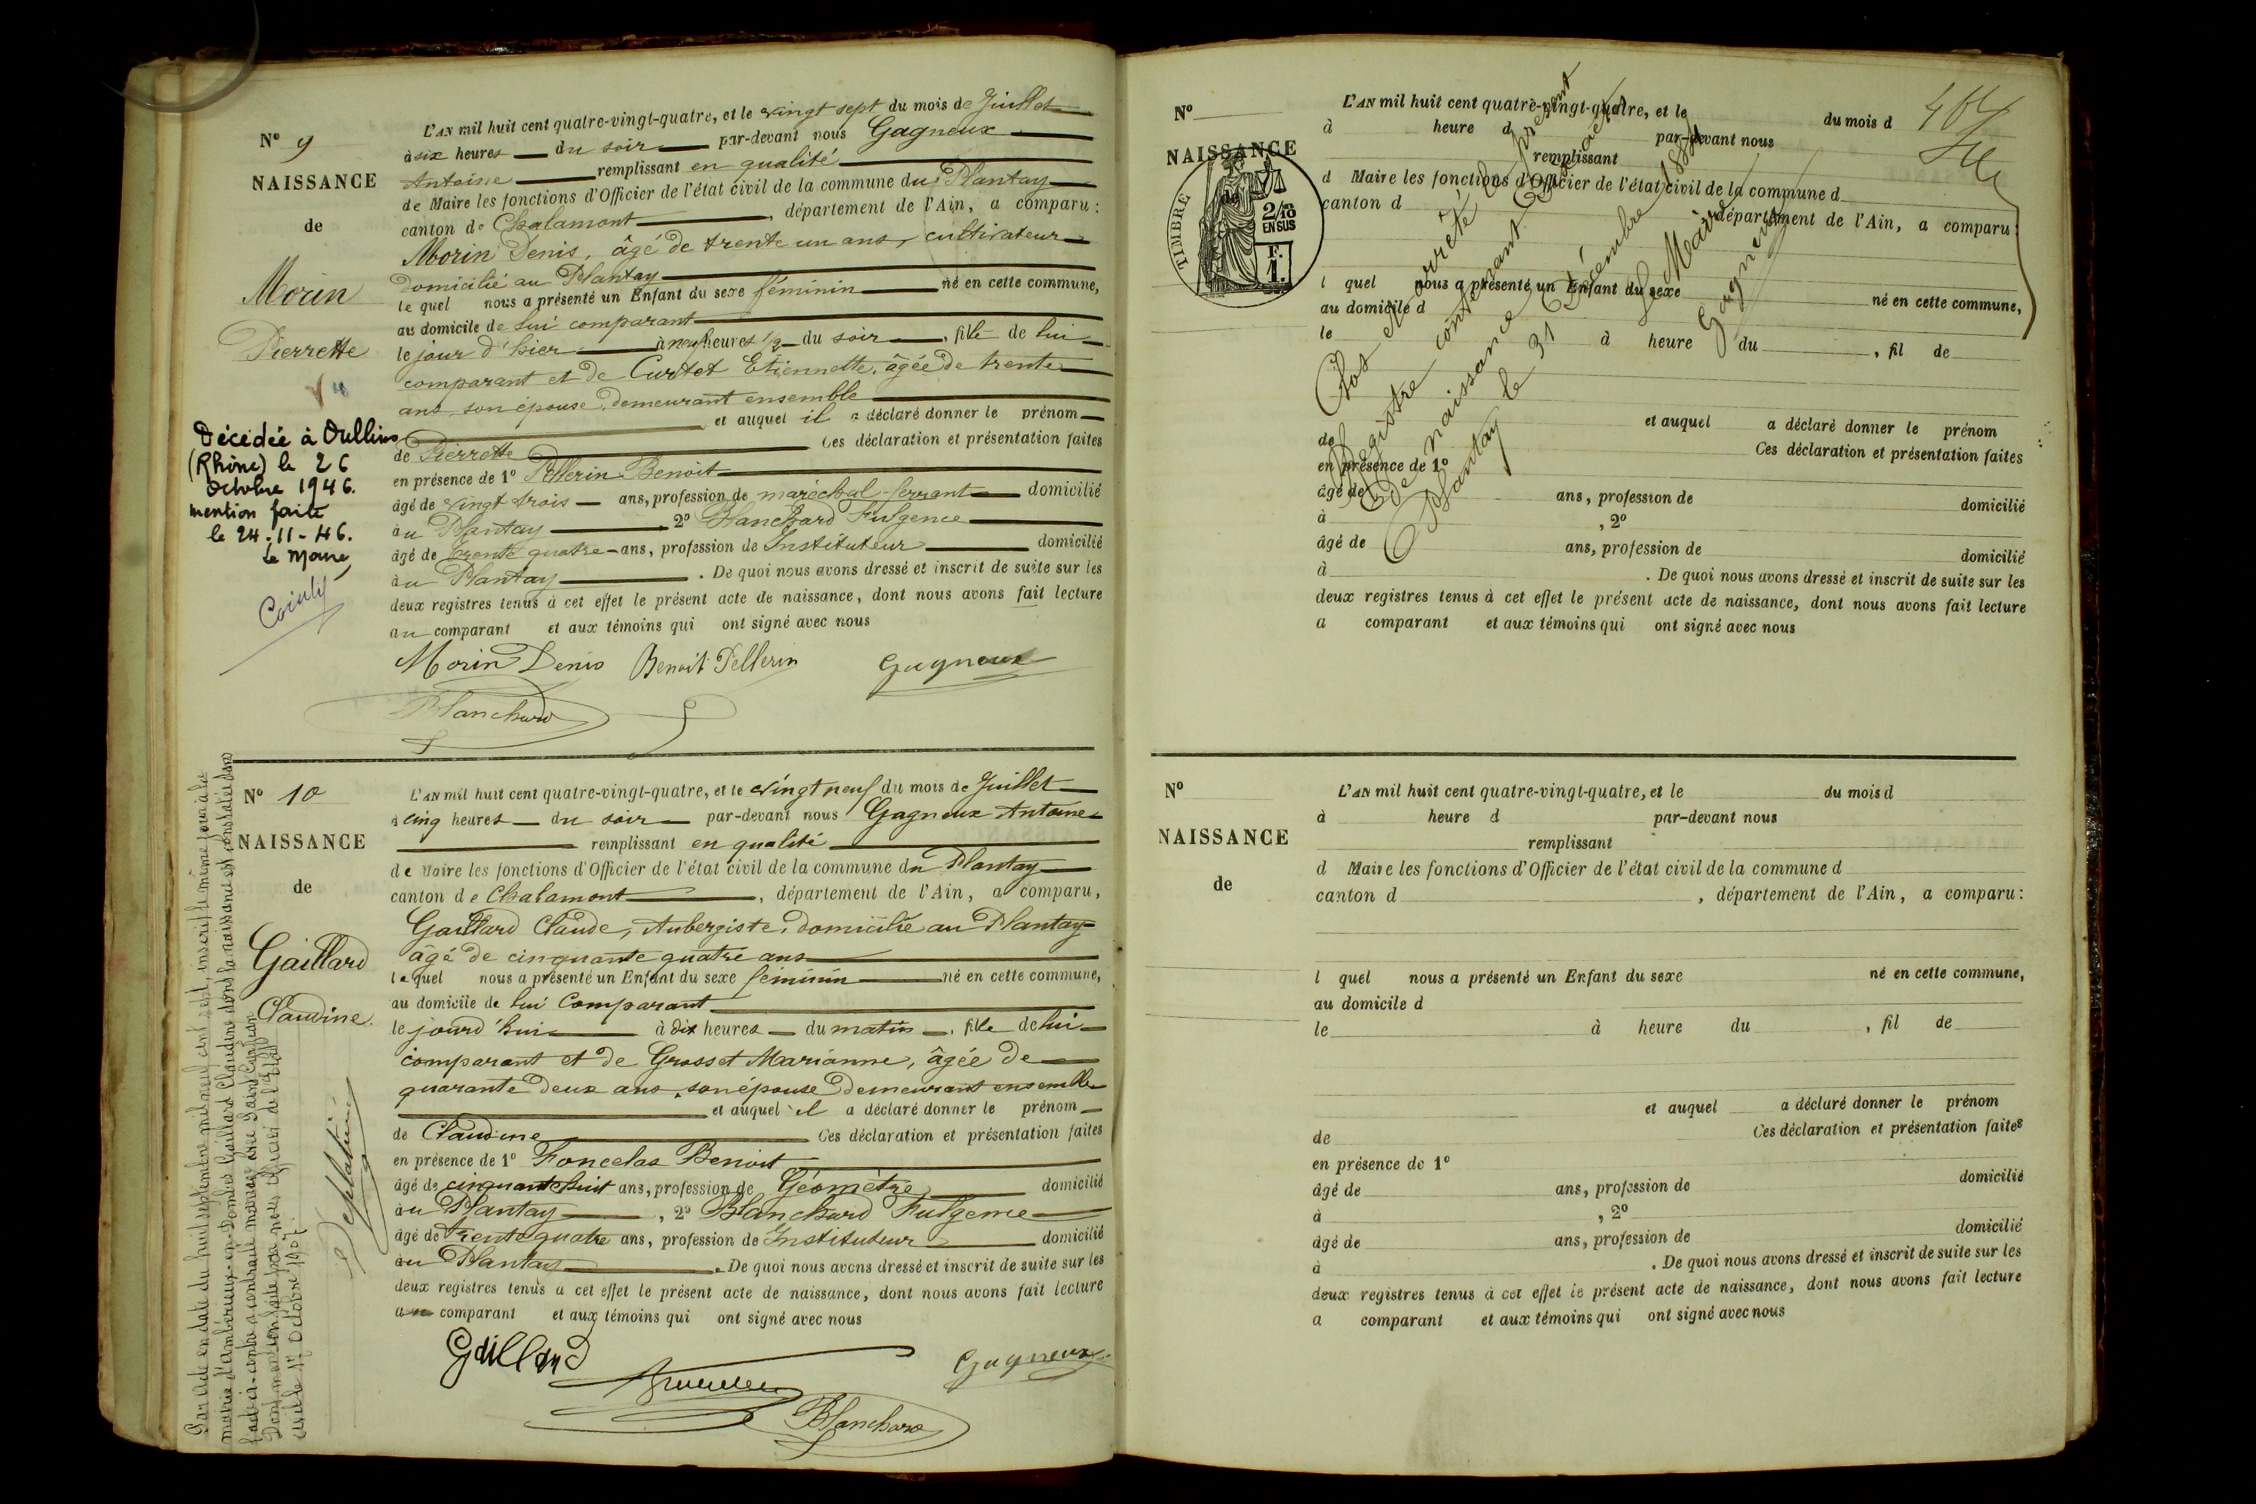 N° 9
NAISSANCE
de
Morin
Pierrette
Décédée à Oullins
(Rhône) le 26
Octobre 1946.
mention faite
le 24-11-46.
Le Maire,
L'AN mil huit cent quatre-vingt-quatre, et le vingt sept du mois de Juillet
à six heures du soir par-devant nous Gagneux
Antoine remplissant en qualité
de Maire les fonctions d'Officier de l'état civil de la commune du Plantay
canton de Chalamont, département de l'Ain, a comparu :
Morin Denis, âgé de trente un ans, cultivateur
domicilié au Plantay
le quel nous a présenté un Enfant du sexe féminin né en cette commune,
au domicile de lui comparant
le jour d'hier à neuf heures 1/2 du soir, fille de lui
comparant et de Curtet Etiennette, âgée de trente
ans, son épouse demeurant ensemble
et auquel il a déclaré donner le prénom
de Pierrette Ces déclaration et présentation faites
en présence de 1° Pellerin Benoit
âgé de vingt trois ans, profession de maréchal-ferrant domicilié
au Plantay, 2° Blanchard Fulgence
âgé de trente quatre ans, profession de Instituteur domicilié
au Plantay. De quoi nous avons dressé et inscrit de suite sur les
deux registres tenus à cet effet le présent acte de naissance, dont nous avons fait lecture
au comparant et aux témoins qui ont signé avec nous
Morin Denis Benoit Pellerin Gagneux
Blanchard
N° 10
NAISSANCE
de
Gaillard
Claudine.
Par acte en date du huit septembre mil neuf cent sept, inscrit le même jour à la
mairie d'Ambérieux-en-Dombes Gaillard Claudine dont la naissance est constatée dans
l'acte ci-contre a contracté mariage avec
Dont mention faite par nous Officier de l'Etat
civil le 17 Octobre 1907.
L'AN mil huit cent quatre-vingt-quatre, et le vingt neuf du mois de Juillet
à cinq heures du soir par-devant nous Gagneux Antoine
remplissant en qualité
de Maire les fonctions d'Officier de l'état civil de la commune du Plantay
canton de Chalamont, département de l'Ain, a comparu,
Gaillard Claude, Aubergiste, domicilié au Plantay
âgé de cinquante quatre ans
le quel nous a présenté un Enfant du sexe féminin né en cette commune,
au domicile de lui Comparant
le jourd'hui à dix heures du matin, fille de lui
comparant et de Grosset Marianne, âgée de
quarante deux ans, son épouse demeurant ensemble
et auquel il a déclaré donner le prénom
de Claudine Ces déclaration et présentation faites
en présence de 1° Foncelas Benoit
âgé de cinquante huit ans, profession de Géomètre domicilié
au Plantay, 2° Blanchard Fulgence
âgé de trente quatre ans, profession de Instituteur domicilié
au Plantay. De quoi nous avons dressé et inscrit de suite sur les
deux registres tenus à cet effet le présent acte de naissance, dont nous avons fait lecture
au comparant et aux témoins qui ont signé avec nous
Gaillard
Gagneux
Blanchard
N°
NAISSANCE
de
TIMBRE
2/10
EN SUS
F.
1.
L'AN mil huit cent quatre-vingt-quatre, et le du mois d
à heure d par-devant nous
remplissant
d Maire les fonctions d'Officier de l'état civil de la commune d
canton d département de l'Ain, a comparu :
l quel nous a présenté un Enfant du sexe né en cette commune,
au domicile d
le à heure du , fil de
et auquel a déclaré donner le prénom
de Ces déclaration et présentation faites
en présence de 1°
âgé de ans, profession de domicilié
à , 2°
âgé de ans, profession de domicilié
à . De quoi nous avons dressé et inscrit de suite sur les
deux registres tenus à cet effet le présent acte de naissance, dont nous avons fait lecture
a comparant et aux témoins qui ont signé avec nous
Clos et arrêté le présent
Registre contenant
de naissance
Plantay le 31 Décembre 1884
Le Maire
Gagneux
N°
NAISSANCE
de
L'AN mil huit cent quatre-vingt-quatre, et le du mois d
à heure d par-devant nous
remplissant
d Maire les fonctions d'Officier de l'état civil de la commune d
canton d , département de l'Ain, a comparu :
l quel nous a présenté un Enfant du sexe né en cette commune,
au domicile d
le à heure du , fil de
et auquel a déclaré donner le prénom
de Ces déclaration et présentation faites
en présence de 1°
âgé de ans, profession de domicilié
à , 2°
âgé de ans, profession de domicilié
à . De quoi nous avons dressé et inscrit de suite sur les
deux registres tenus à cet effet le présent acte de naissance, dont nous avons fait lecture
a comparant et aux témoins qui ont signé avec nous